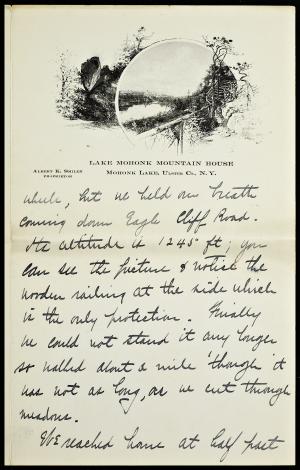 LAKE MOHONK MOUNTAIN HOUSE
ALBERT K. SMILEY
PROPRIETOR
MOHONK LAKE, ULSTER CO., N. Y.
while, but we held our breath
coming down Eagle Cliff Road.
the altitude is 1245 ft; you
can see the picture & notice the
wooden railing at the side which
is the only protection. Finally
we could not stand it any longer
so walked about a mile 'though it
was not as long, as we cut through
meadows.
We reached home at half past